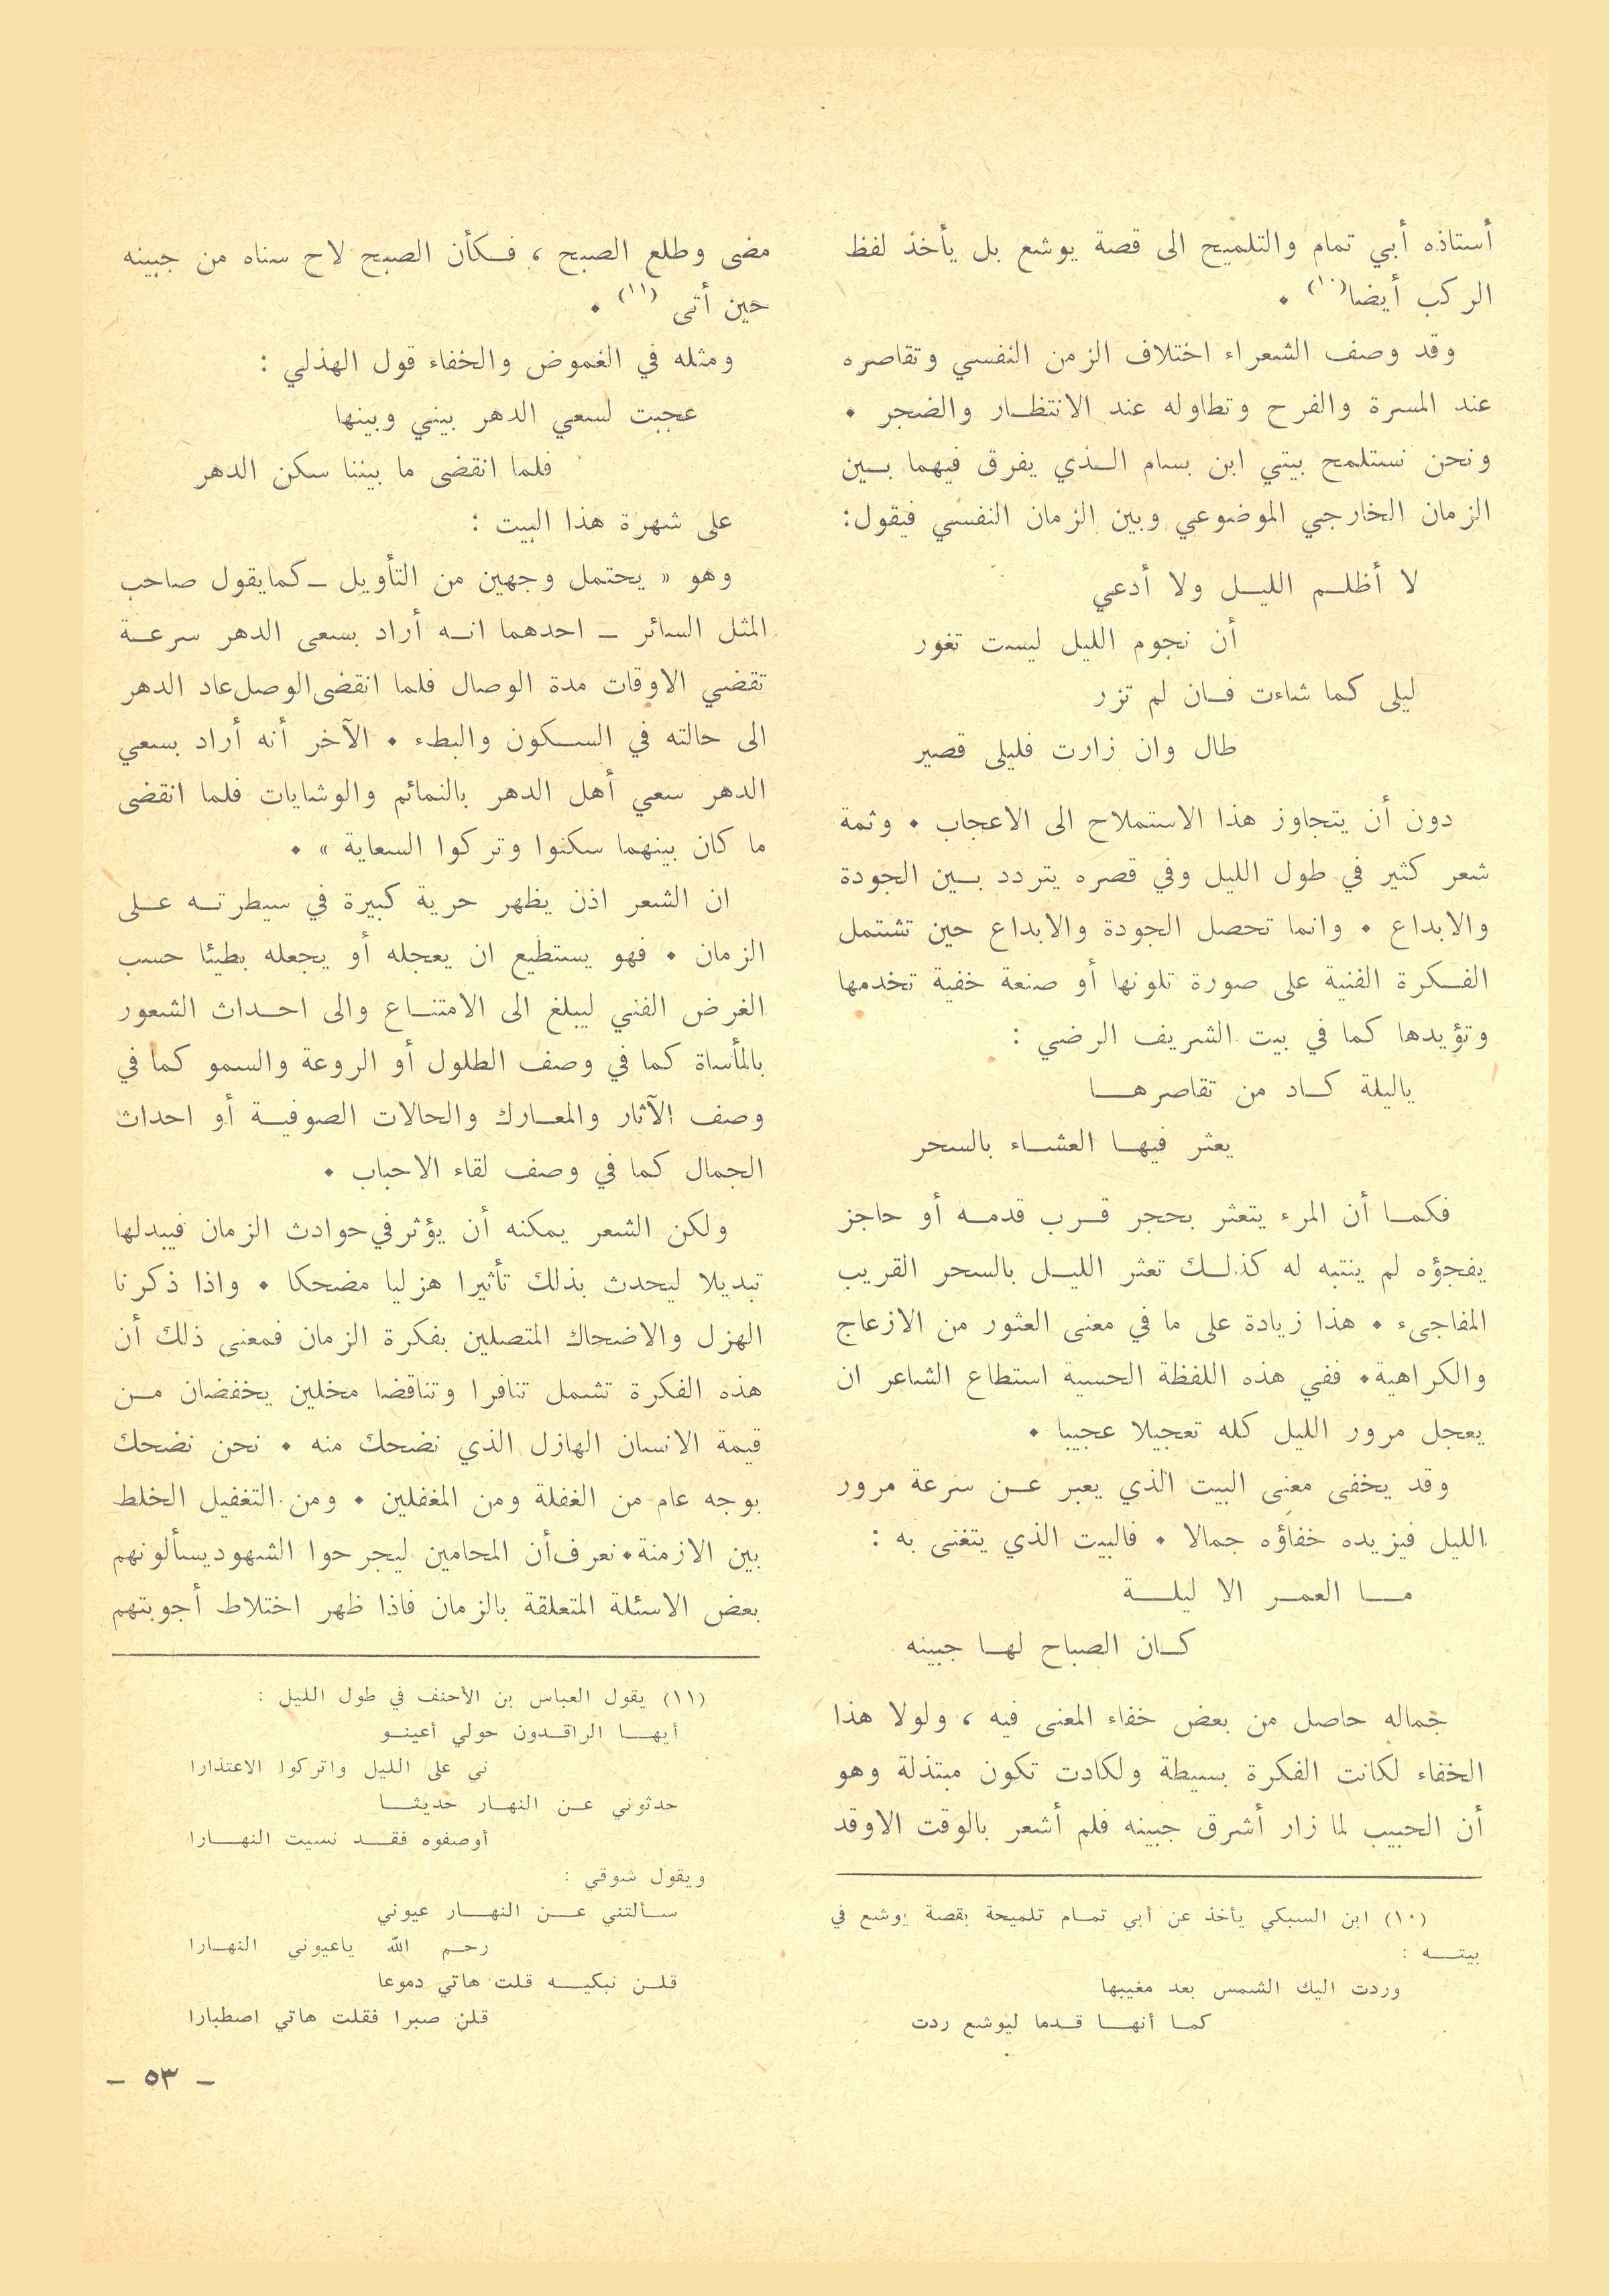 أستاذه أبي تمام والتلميح الى قصة يوشع بل يأخذ لفظ
الركب أيضا(١٠) ٠
وقد وصف الشعراء اختلاف الزمن النفسي وتقاصره
عند المسرة والفرح وتطاوله عند الانتظار والضجر ٠
ونحن نستلمح بيتي ابن بسام الذي يفرق فيهما بين
الزمان الخارجي الموضوعي وبين الزمان النفسي فيقول:
لا أظلم الليل ولا أدعي
أن نجوم الليل ليست تغور
ليلى كما شاءت فان لم تزر
طال وان زارت فليلى قصير
دون أن يتجاوز هذا الاستملاح الى الاعجاب ٠ وثمة
شعر كثير في طول الليل وفي قصره يتردد بين الجودة
والابداع ٠ وانما تحصل الجودة والابداع حين تشتمل
الفكرة الفنية على صورة تلونها أو صنعة خفية تخدمها
وتؤيدها كما في بيت الشريف الرضي :
ياليلة كاد من تقاصرها
يعثر فيها العشاء بالسحر
فكما أن المرء يتعثر بحجر قرب قدمه أو حاجز
يفجؤه لم ينتبه له كذلك تعثر الليل بالسحر القريب
المفاجىء ٠ هذا زيادة على ما في معنى العثور من الازعاج
والكراهية٠ ففي هذه اللفظة الحسية استطاع الشاعر ان
يعجل مرور الليل كله تعجيلا عجيبا ٠
وقد يخفى معنى البيت الذي يعبر عن سرعة مرور
الليل فيزيده خفاؤه جمالا ٠ فالبيت الذي يتغنى به :
ما العمر الا ليلة
كان الصباح لها جبينه
جماله حاصل من بعض خفاء المعنى فيه ، ولولا هذا
الخفاء لكانت الفكرة بسيطة ولكادت تكون مبتذلة وهو
أن الحبيب لما زار أشرق جبينه فلم أشعر بالوقت الاوقد
(١٠) ابن السبكي يأخذ عن أبي تمام تلميحة بقصة يوشع في
بيته :
وردت اليك الشمس بعد مغيبها
كما أنها قدما ليوشع ردت
مضى وطلع الصبح ، فكأن الصبح لاح سناه من جبينه
حين أتى (١١) ٠
ومثله في الغموض والخفاء قول الهذلي :
عجبت لسعي الدهر بيني وبينها
فلما انقضى ما بيننا سكن الدهر
على شهرة هذا البيت :
وهو « يحتمل وجهين من التأويل ــ كمايقول صاحب
المثل السائر ــ احدهما انه أراد بسعى الدهر سرعة
تقضي الاوقات مدة الوصال فلما انقضى الوصل عاد الدهر
الى حالته في السكون والبطء ٠ الآخر أنه أراد بسعي
الدهر سعي أهل الدهر بالنمائم والوشايات فلما انقضى
ما كان بينهما سكنوا وتركوا السعاية » ٠
ان الشعر اذن يظهر حرية كبيرة في سيطرته على
الزمان ٠ فهو يستطيع ان يعجله أو يجعله بطيئا حسب
الغرض الفني ليبلغ الى الامتناع والى احداث الشعور
بالمأساة كما في وصف الطلول أو الروعة والسمو كما في
وصف الآثار والمعارك والحالات الصوفية أو احداث
الجمال كما في وصف لقاء الاحباب ٠
ولكن الشعر يمكنه أن يؤثر في حوادث الزمان فيبدلها
تبديلا ليحدث بذلك تأثيرا هزليا مضحكا ٠ واذا ذكرنا
الهزل والاضحاك المتصلين بفكرة الزمان فمعنى ذلك أن
هذه الفكرة تشمل تنافرا وتناقضا مخلين يخفضان من
قيمة الانسان الهازل الذي نضحك منه ٠ نحن نضحك
بوجه عام من الغفلة ومن المغفلين ٠ ومن التغفيل الخلط
بين الازمنة٠نعرف أن المحامين ليجرحوا الشهود يسألونهم
بعض الاسئلة المتعلقة بالزمان فاذا ظهر اختلاط أجوبتهم
(١١) يقول العباس بن الأحنف في طول الليل :
أيها الراقدون حولي أعينو
ني على الليل واتركوا الاعتذارا
حدثوني عن النهار حديثا
أوصفوه فقد نسيت النهارا
ويقول شوقي :
سألتني عن النهار عيوني
رحم الله ياعيوني النهارا
قلن نبكيه قلت هاتي دموعا
قلن صبرا فقلت هاتي اصطبارا
– ٥٣ –